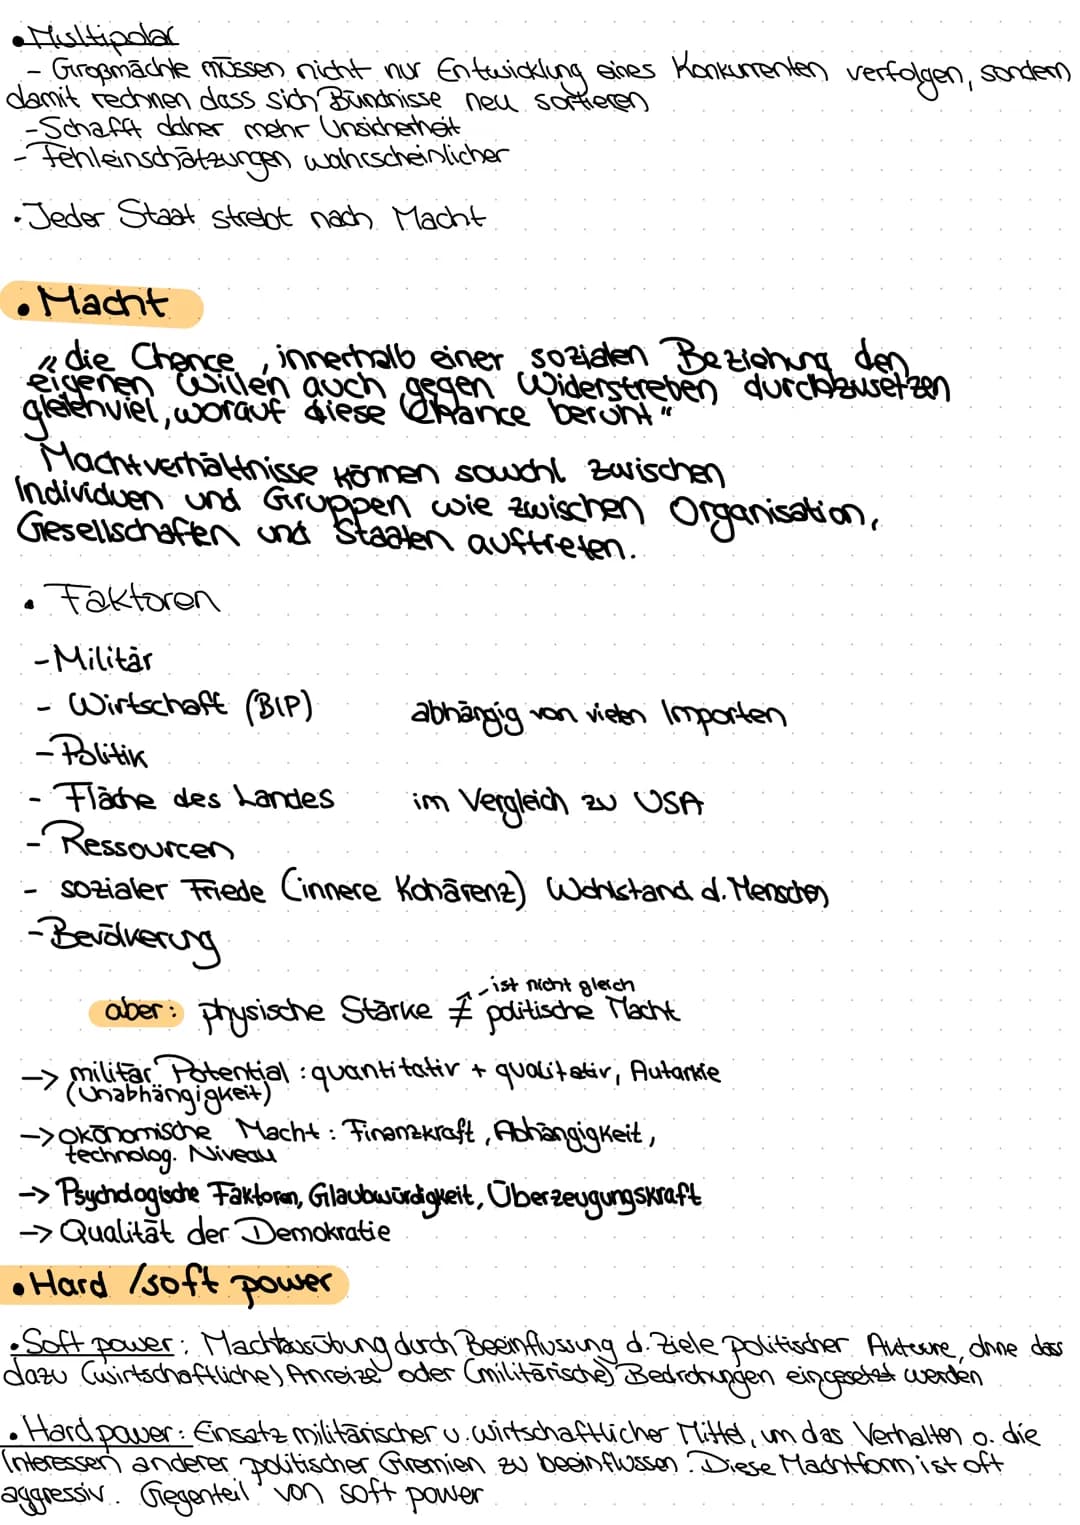 • Multipolar
- Großmächte müssen nicht nur Entwicklung eines Konkurrenten verfolgen, sondern
damit rechnen dass sich Bündnisse neu sortieren
- Schafft daher mehr Unsicherheit
- Fehleinschätzungen wahrscheinlicher
• Jeder Staat strebt nach Macht
• Macht
„die Chance, innerhalb einer sozialen Beziehung den
eigenen Willen auch gegen Widerstreben durchzusetzen
gleichviel, worauf diese Chance beruht"
Machtverhältnisse können sowohl zwischen
Individuen und Gruppen wie zwischen Organisation,
Gesellschafen und Staaten auftreten.
• Faktoren
- Militär
- Wirtschaft (BIP) abhängig von vielen Importen
- Politik
- Fläche des Landes im Vergleich zu USA
- Ressourcen
- sozialer Friede (innere Kohärenz) Wohlstand d. Menschen
- Bevölkerung
ist nicht gleich
aber: physische Stärke ≠ politische Macht
-> militär Potential: quantitativ + qualitativ, Autarkie
(Unabhängigkeit)
-> ökonomische Macht: Finanzkraft, Abhängigkeit,
technolog. Niveau
-> Psychologische Faktoren, Glaubwürdigkeit, Überzeugungskraft
-> Qualität der Demokratie
• Hard /soft power
• Soft power: Machtausübung durch Beeinflussung d. Ziele politischer Auteure, ohne dass
dazu (wirtschaftliche) Anreize oder (militärische) Bedrohungen eingesetzt werden
• Hard power: Einsatz militärischer u. wirtschaftlicher Mittel, um das Verhalten o. die
Interessen anderer politischer Gremien zu beeinflussen. Diese Machtform ist oft
aggressiv. Gegenteil von soft power